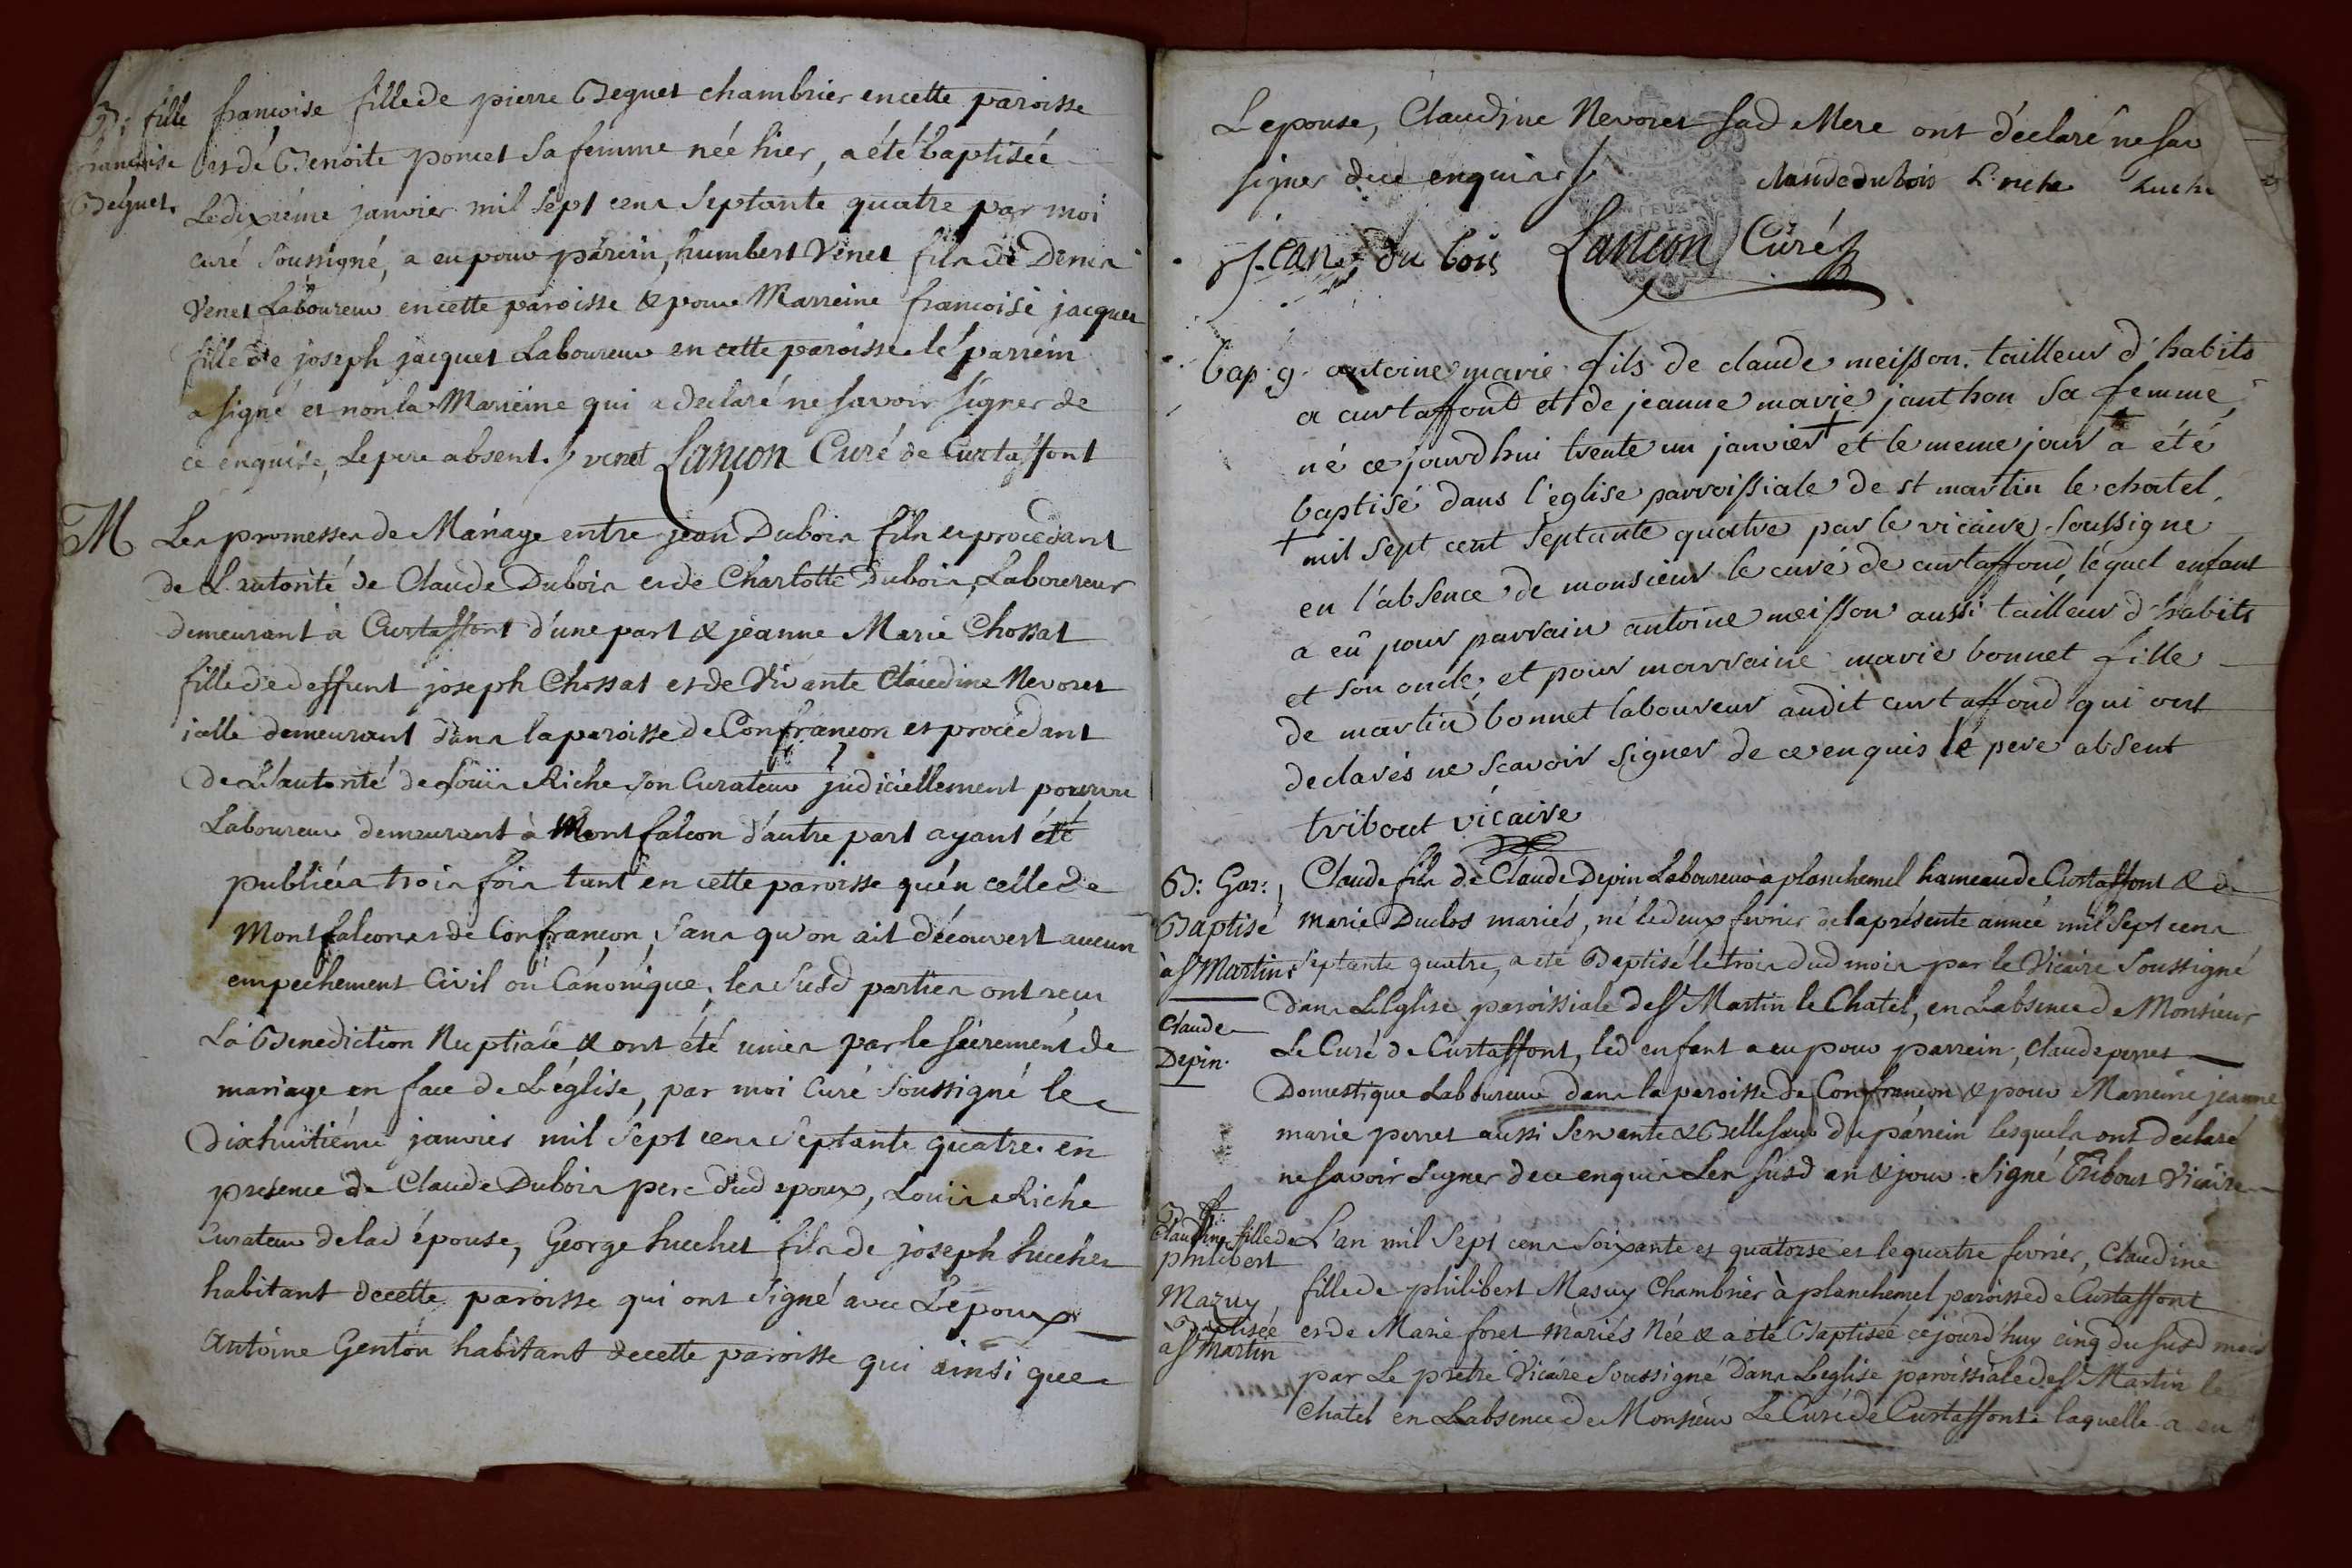 B: fille françoise fille de pierre Beguet chambrier en cette paroisse
françoise et de Benoite poncet Sa femme née hier, a été baptisée
Beguet. Le dixième janvier mil Sept cens Septante quatre par moi
curé Soussigné, a eu pour parrein, humbert Venet fils de Denis
Venet Laboureur en cette paroisse & pour Marreine françoise jacquet
fille de joseph jacquet Laboureur en cette paroisse le parrein
a signé et non la Marreine qui a declaré ne savoir signer de
ce enquise, Le pere absent. venet Lançon Curé de Curtaffont
M Les promesses de Mariage entre jean Dubois fils et procédant
de L'autorité de Claude Dubois et de Charlotte Dubois, Laboureur
demeurant à Curtaffont d'une part & jeanne Marie Chossat
fille de deffunt joseph Chossat et de Vivante Claudine Nevoret
icelle demeurant dans la paroisse de Confrançon et procédant
de L'autorité de Louis Riche son Curateur judiciellement pourvu
Laboureur demeurant à Montfalcon d'autre part ayant été
publiées trois fois tant en cette paroisse qu'en celle de
Montfalcon et de Confrançon, Sans qu'on ait découvert aucun
empechement Civil ou Canonique, les Susd parties ont reçu
La Benediction Nuptiale & ont été unies par le sacrement de
mariage en face de L'église, par moi Curé Soussigné le
Dixhuitième janvier mil Sept cens Septante quatre en
presence de Claude Dubois pere dud epoux, Louis Riche
Curateur de lad épouse, George Luchet fils de joseph Luchet
habitant de cette paroisse qui ont Signé avec L'epoux
Antoine Genton habitant de cette paroisse qui ainsi que
L'epouse, Claudine Nevoret sad Mere ont déclaré ne sav
signer de ce enquis
claude du bois L riche Luche
jean du bois Lançon Curé
Bap. g. antoine marie fils de claude meisson tailleur d'habits
a curtaffond et de jeanne marie jauthon sa femme,
né ce jourdhui trente un janvier + et le meme jour a été
baptisé dans l'eglise parroissiale de st martin le chatel.
+ mil sept cent septante quatre par le vicaire soussigné
en l'absence de monsieur le curé de curtaffond, lequel enfant
a eû pour parrain antoine meisson aussi tailleur d'habits
et son oncle, et pour marraine marie bonnet fille
de martin bonnet laboureur audit curtaffond qui ont
declarés ne scavoir signer de ce enquis le pere absent
tribout vicaire
B: Gar: Claude fils de Claude Depin Laboureur à planchemel hameau de Curtaffont & de
Baptisé marie Duclos mariés, né le deux fevrier de la présente année mil Sept cens
à St Martin Septante quatre, a été Baptisé le trois dud mois par le Vicaire Soussigné
dans L'Eglise paroissiale de St Martin le Chatel, en L'absence de Monsieur
Claude
Depin. Le Curé de Curtaffont, led enfant a eu pour parrein, claude perret
Domestique Laboureur dans la paroisse de Confrançon & pour Marreine jeanne
marie perret aussi Servante & Belle soeur du parrein lesquels ont declaré
ne savoir signer de ce enquis Les susd an & jour. Signé Tribout Vicaire
Claudine fille de L'an mil Sept cens Soixante et quatorse et le quatre fevrier, Claudine
philibert
Mazuy, fille de philibert Masuy Chambrier à planchemel paroisse de Curtaffont
Baptisée et de Marie foret Mariés Née & a été Baptisée ce jourd'huy cinq du susd mois
à St Martin par Le prêtre Vicaire Soussigné dans L'eglise paroissiale de St Martin le
Chatel en L'absence de Monsieur Le Curé de Curtaffont laquelle a eu